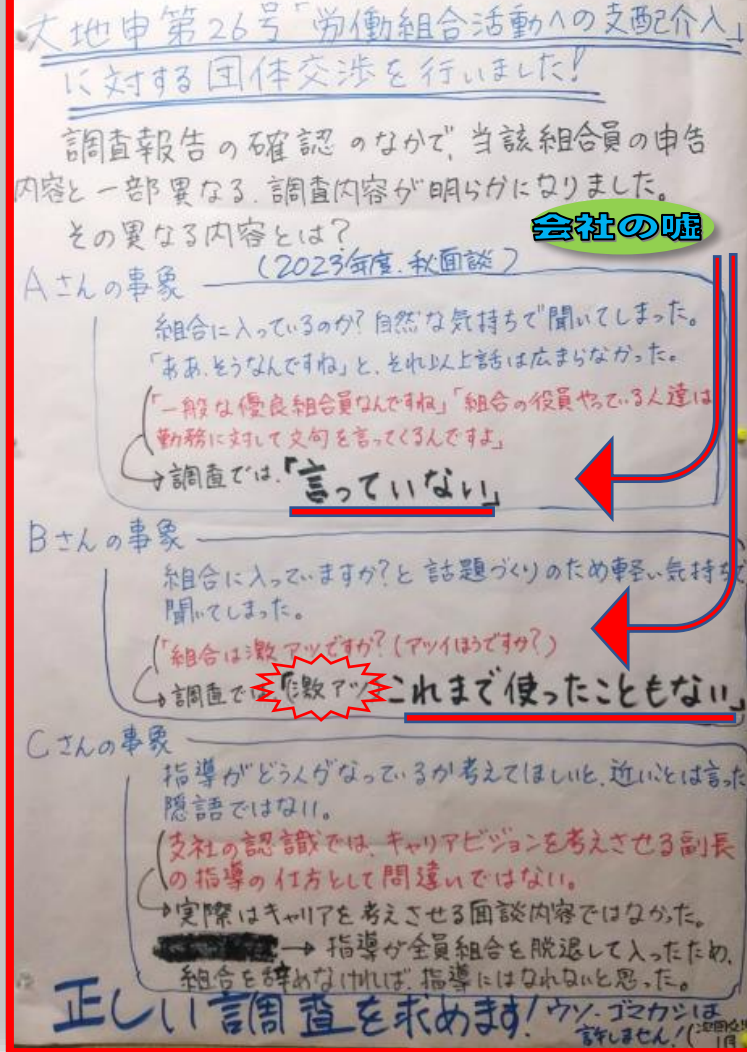 大地申第26号「労働組合活動への支配介入」
に対する団体交渉を行いました!
調査報告の確認のなかで、当該組合員の申告
内容と一部異なる、調査内容が明らかになりました。
その異なる内容とは?
会社の嘘
Aさんの事象
(2023年度、秋面談)
組合に入っているのか?自然な気持ちで聞いてしまった。
「ああ、そうなんですね」と、それ以上話は広まらなかった。
「一般な優良組合員なんですね」「組合の役員やっている人達は
勤務に対して文句を言ってくるんですよ」
→調査では、「言っていない」
Bさんの事象
組合に入っていますか?と話題づくりのため軽い気持ちで
聞いてしまった。
「組合は激アツですか?(アツイほうですか?)
→調査では「激アツ」これまで使ったこともない」
Cさんの事象
指導がどうんがなっているか考えてほしいと、近いことは言った
隠語ではない。
支社の認識では、キャリアビジョンを考えさせる副長
の指導の仕方として間違いではない。
→実際はキャリアを考えさせる面談内容ではなかった。
→指導が全員組合を脱退して入ったため、
組合を辞めなければ、指導にはなれないと思った。
正しい調査を求めます!ウソ・ゴマカシは
許しません!(次回交渉
1月